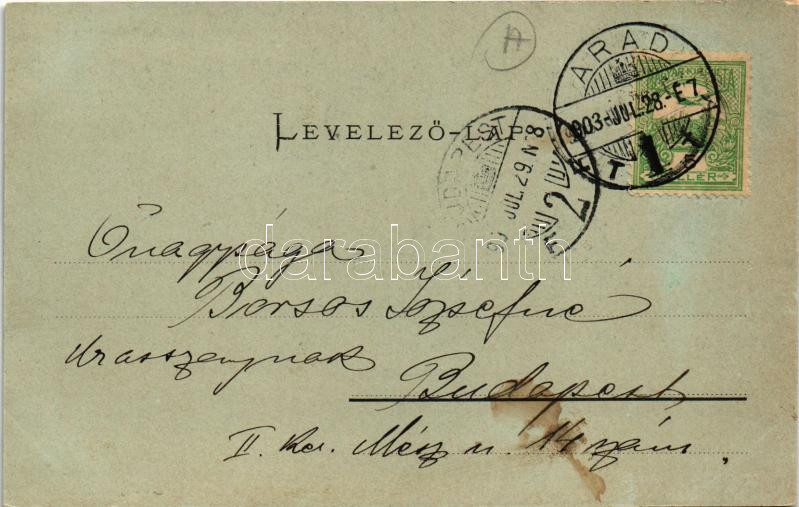 ARAD
903 JUL. 28.-E 7
1
LEVELEZŐ-LAP.
BUDAPEST
JUL. 29. N 8
2
darabanth
Őnagysága
Borsos Józsefné
úrasszonynak
Budapest
II. ker. Mész u. 14 szám.